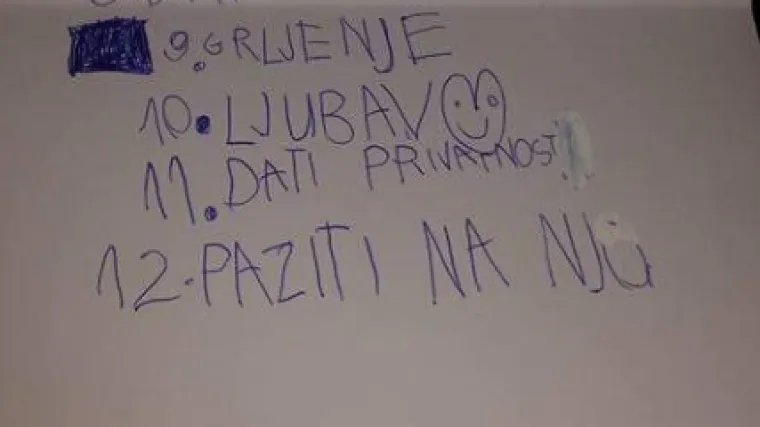 9. GRLJENJE
10. LJUBAV
11. DATI PRIVATNOST
12. PAZITI NA NJU